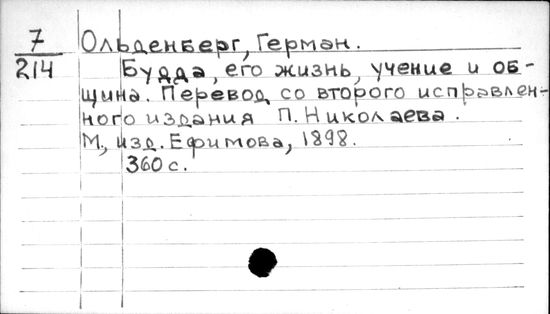 7 Ольденберг, Герман.
214 Будда, его жизнь, учение и об-
щина. Перевод со второго исправлен-
ного издания П. Николаева.
М., изд. Ефимова, 1898.
360 с.